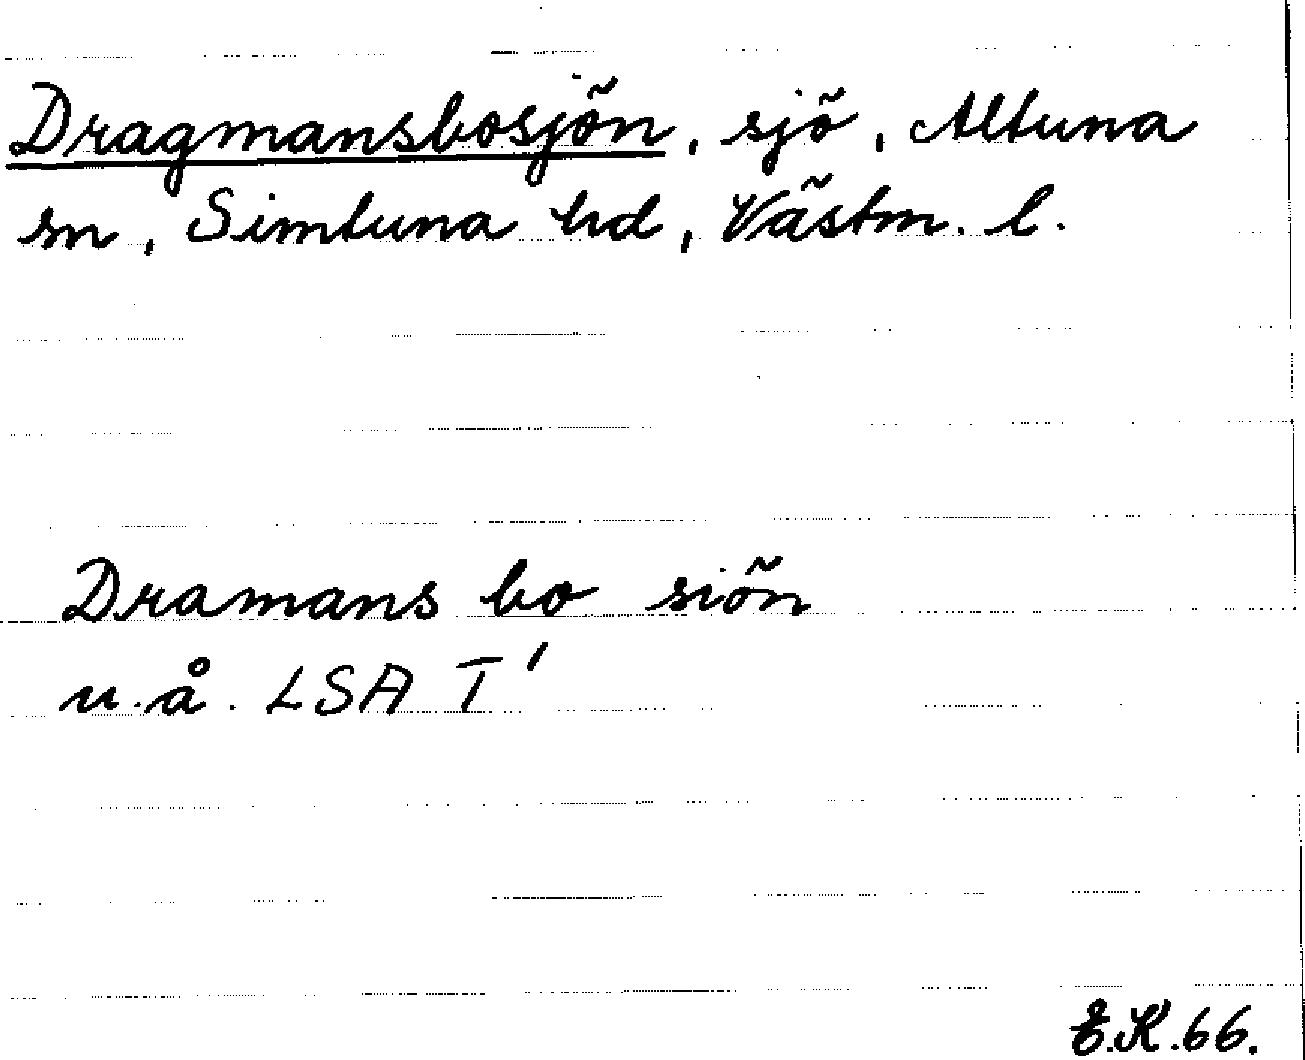 Dragmansbosjön, sjö, Altuna
sn, Simtuna hd, Västm. l.
Dramans bo siön
u.å. LSA T'
E.K.66.